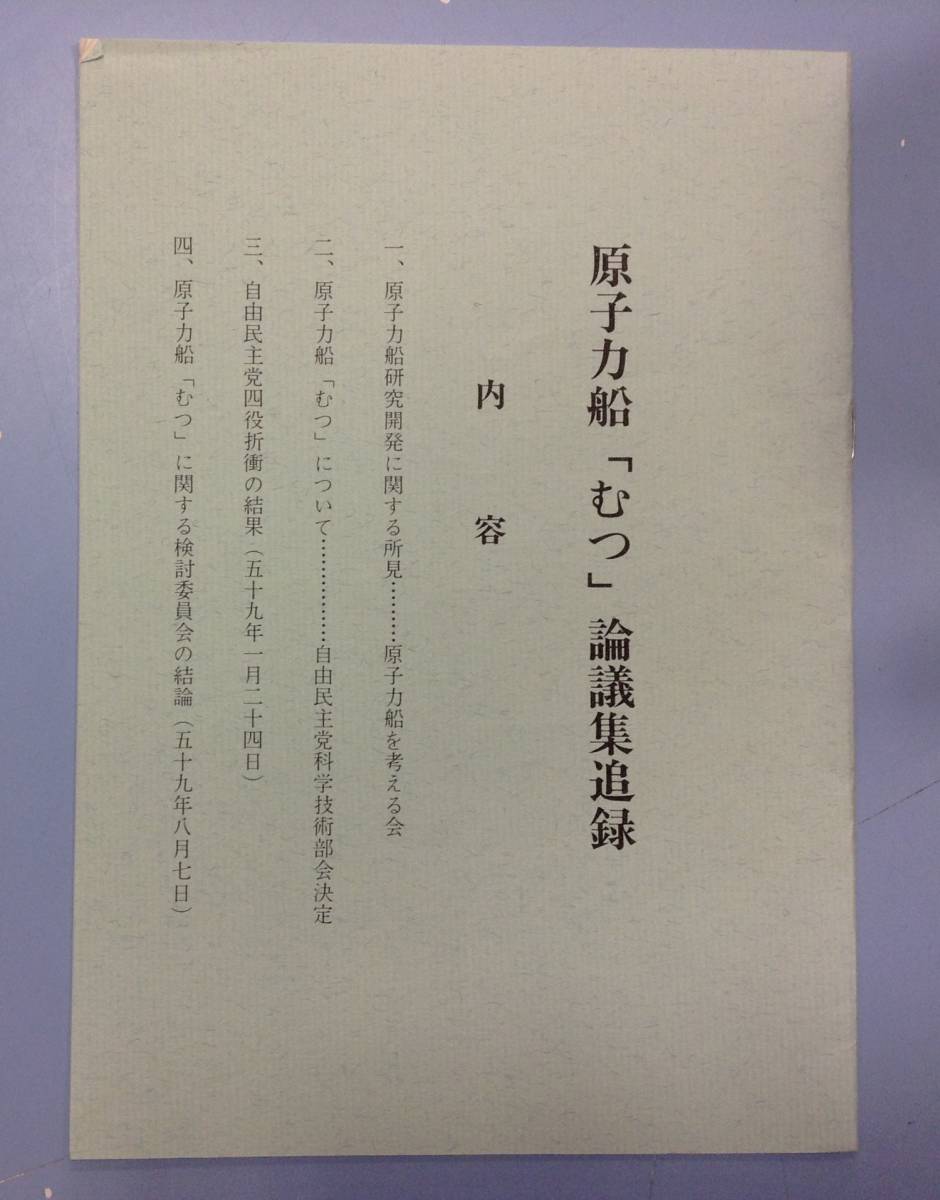 原子力船「むつ」論議集追録
内容
一、原子力船研究開発に関する所見………原子力船を考える会
二、原子力船「むつ」について………………自由民主党科学技術部会決定
三、自由民主党四役折衝の結果(五十九年一月二十四日)
四、原子力船「むつ」に関する検討委員会の結論(五十九年八月七日)